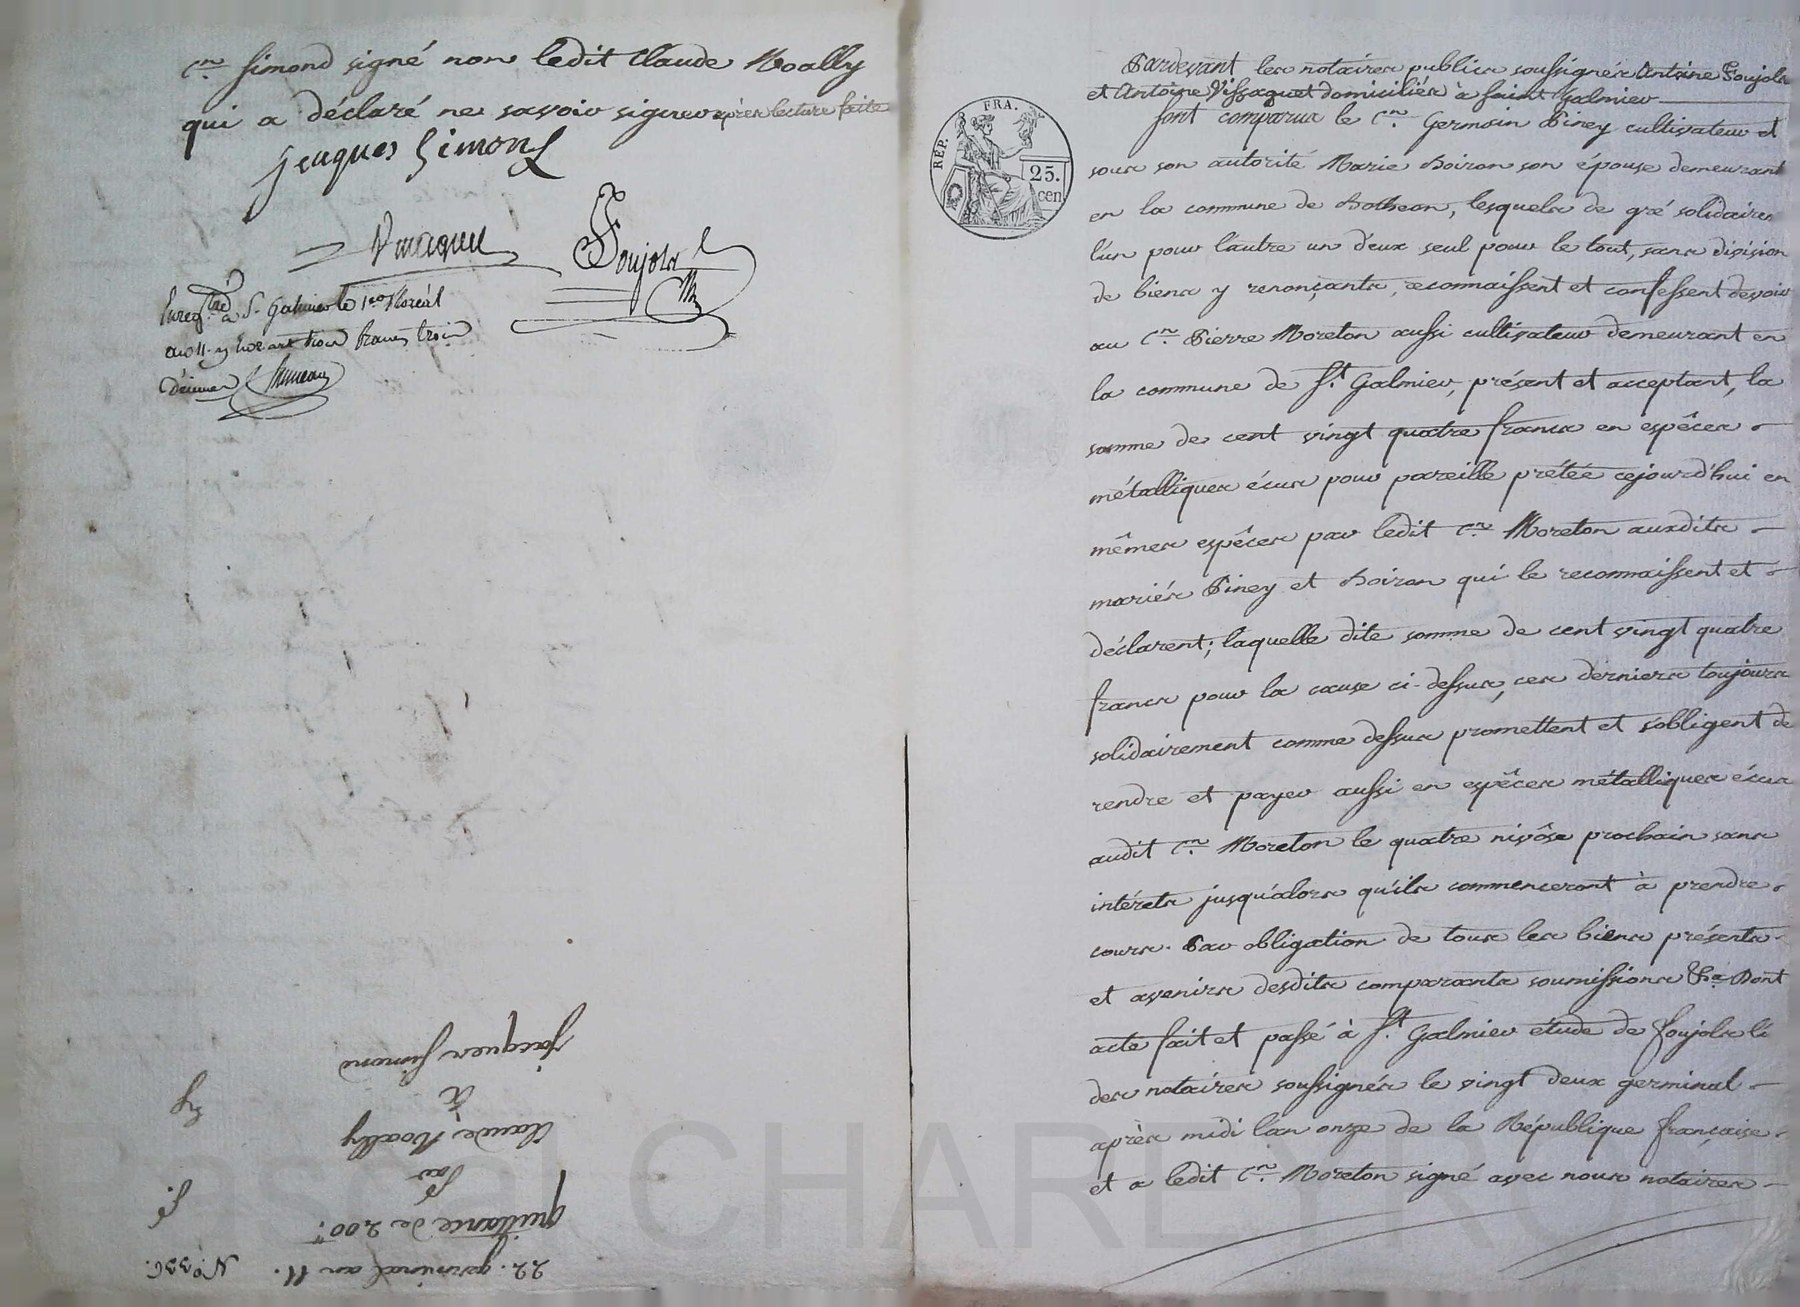 Cn. Simond signé non ledit Claude Noally
qui a déclaré ne savoir signer après lecture faite
Jacques Simond
Vissaguet Foujols
Enregtré à St. Galmier le 1er floréal
an 11. reçu trois francs trois
décimes
22. germinal an 11. N.° 336.
quittance de 200 ff
Par
Claude Noally
à
Jacques Simond
RÉP. FRA.
25.
cen
Pardevant les notaires publics soussignés Antoine Foujols
et Antoine Vissaguet domiciliés à Saint Galmier
font comparus le Cn. Germain Piney cultivateur et
sous son autorité Marie Boiron son épouse demeurant
en la commune de Botheon, lesquels de gré solidaires
l'un pour l'autre un d'eux seul pour le tout, sans division
de biens y renonçants, reconnaissent et confessent devoir
au Cn. Pierre Moreton aussi cultivateur demeurant en
la commune de St. Galmier, présent et acceptant, la
somme de cent vingt quatre francs en espêces
métalliques écus pour pareille prétée cejourd'hui en
mêmes espêces par ledit Cn. Moreton auxdits
mariés Piney et Boiron qui le reconnaissent et
déclarent; laquelle dite somme de cent vingt quatre
francs pour la cause ci-dessus, ces derniers toujours
solidairement comme dessus promettent et s'obligent de
rendre et payer aussi en espêces métalliques écus
audit Cn. Moreton le quatre nivôse prochain sans
intérets jusqu'alors qu'ils commenceront à prendre
cours. Par obligation de tous les biens présents
et avenirs desdits comparants soumissions &a. Dont
acte fait et passé à St. Galmier étude de Foujols l'i
des notaires soussignés le vingt deux germinal
après midi l'an onze de la République française
et a ledit Cn. Moreton signé avec nous notaires
Pascal CHARLYRON